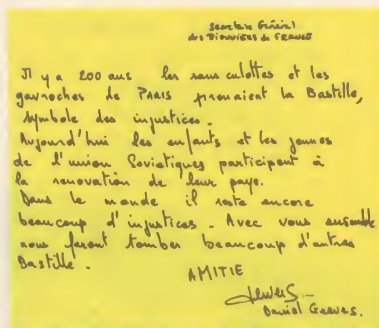 Secrétaire Général
des Pionniers de FRANCE
Il y a 200 ans les sans culottes et les
gavroches de PARIS prenaient la Bastille,
symbole des injustices.
Aujourd'hui les enfants et les jeunes
de l'union Soviétiques participent à
la renovation de leur pays.
Dans le monde il reste encore
beaucoup d'injustices. Avec vous ensemble
nous feront tomber beaucoup d'autres
Bastille.
AMITIE
Daniel